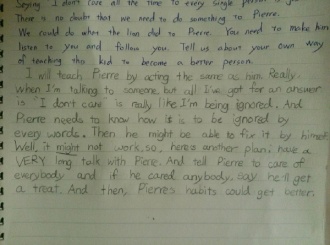 Saying "I don't care all the time to every single person is
There is no doubt that we need to do something to Pierre.
We could do what the lion did to Pierre. You need to make him
listen to you and follow you. Tell us about your own way
of teaching this kid to become a better person.
I will teach Pierre by acting the same as him. Really,
when I'm talking to someone, but all I've got for an answer
is "I don't care" is really like I'm being ignored. And
Pierre needs to know how is to be ignored by
every words. Then he might be able to fix it by himself.
Well, it might not work, so, here's another plan; have a
VERY long talk with Pierre. And tell Pierre to care of
everybody and if he cared anybody, say he'll get
a treat. And then, Pierre's habits could get better.